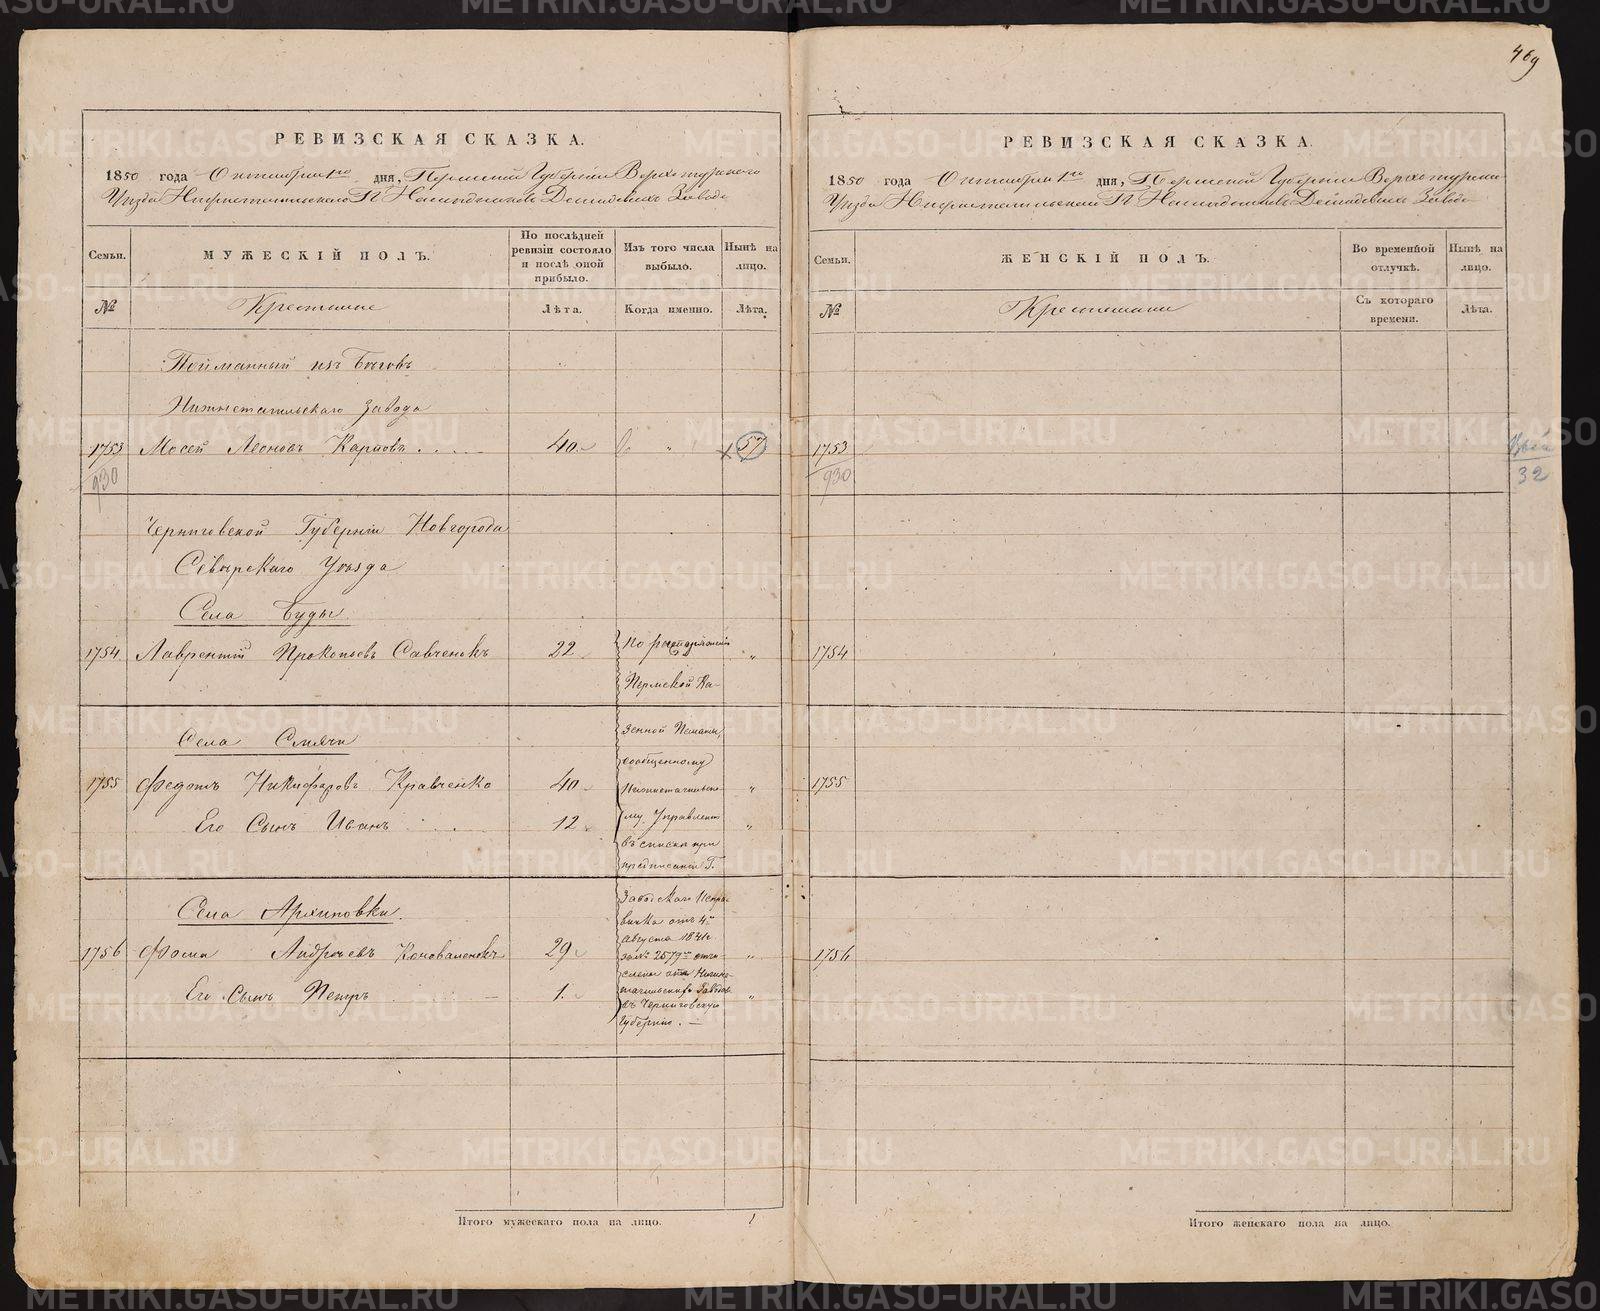 469
РЕВИЗСКАЯ СКАЗКА.
1850 года Октября 1го дня, Пермской Губернiи Верхотурского
Уѣзда Нижнетагильского Гг Наслѣдниковъ Демидовыхъ Завода
Семьи.
МУЖЕСКІЙ ПОЛЪ.
По послѣдней ревизіи состояло и послѣ оной прибыло.
Изъ того числа выбыло.
Нынѣ на лицо.
№
Крестьяне
Лѣта.
Когда именно.
Лѣта.
Пойманный изъ бѣговъ
Нижнетагильскаго завода
1753 Мосей Леоновъ Карповъ 40 " 57
930
Черниговской Губерніи Новгорода
Сѣверскаго Уѣзда
Села Буды
1754 Лаврентій Прокопьевъ Савченокъ 22 "
Села Смячи
1755 Федотъ Никифоровъ Кравченко 40 "
Его Сынъ Иванъ 12 "
Села Архиповки.
1756 Фома Андреевъ Коноваленокъ 29 "
Его Сынъ Петръ 1. "
По распоряженію
Пермской Ка-
зенной Палаты,
сообщенному
Нижнетагильско-
му Управленію
въ списке при
предписаніи Г.
Заводскаго Исправ-
ника отъ 4го
Августа 1841г.
за № 2579м отчи-
слены отъ Нижне-
тагильскихъ Заводовъ
въ Черниговскую
Губернію. —
Итого мужескаго пола на лицо. 1
РЕВИЗСКАЯ СКАЗКА.
1850 года Октября 1го дня, Пермской Губерніи Верхотурскаго
Уѣзда Нижнетагильскаго Гг Наслѣдниковъ Демидовыхъ Завода
Семьи.
ЖЕНСКІЙ ПОЛЪ.
Во временной отлучкѣ.
Нынѣ на лицо.
№
Крестьянки
Съ котораго времени.
Лѣта.
1753
930
32
1754
1755
1756
Итого женскаго пола на лицо.
METRIKI.GASO-URAL.RU